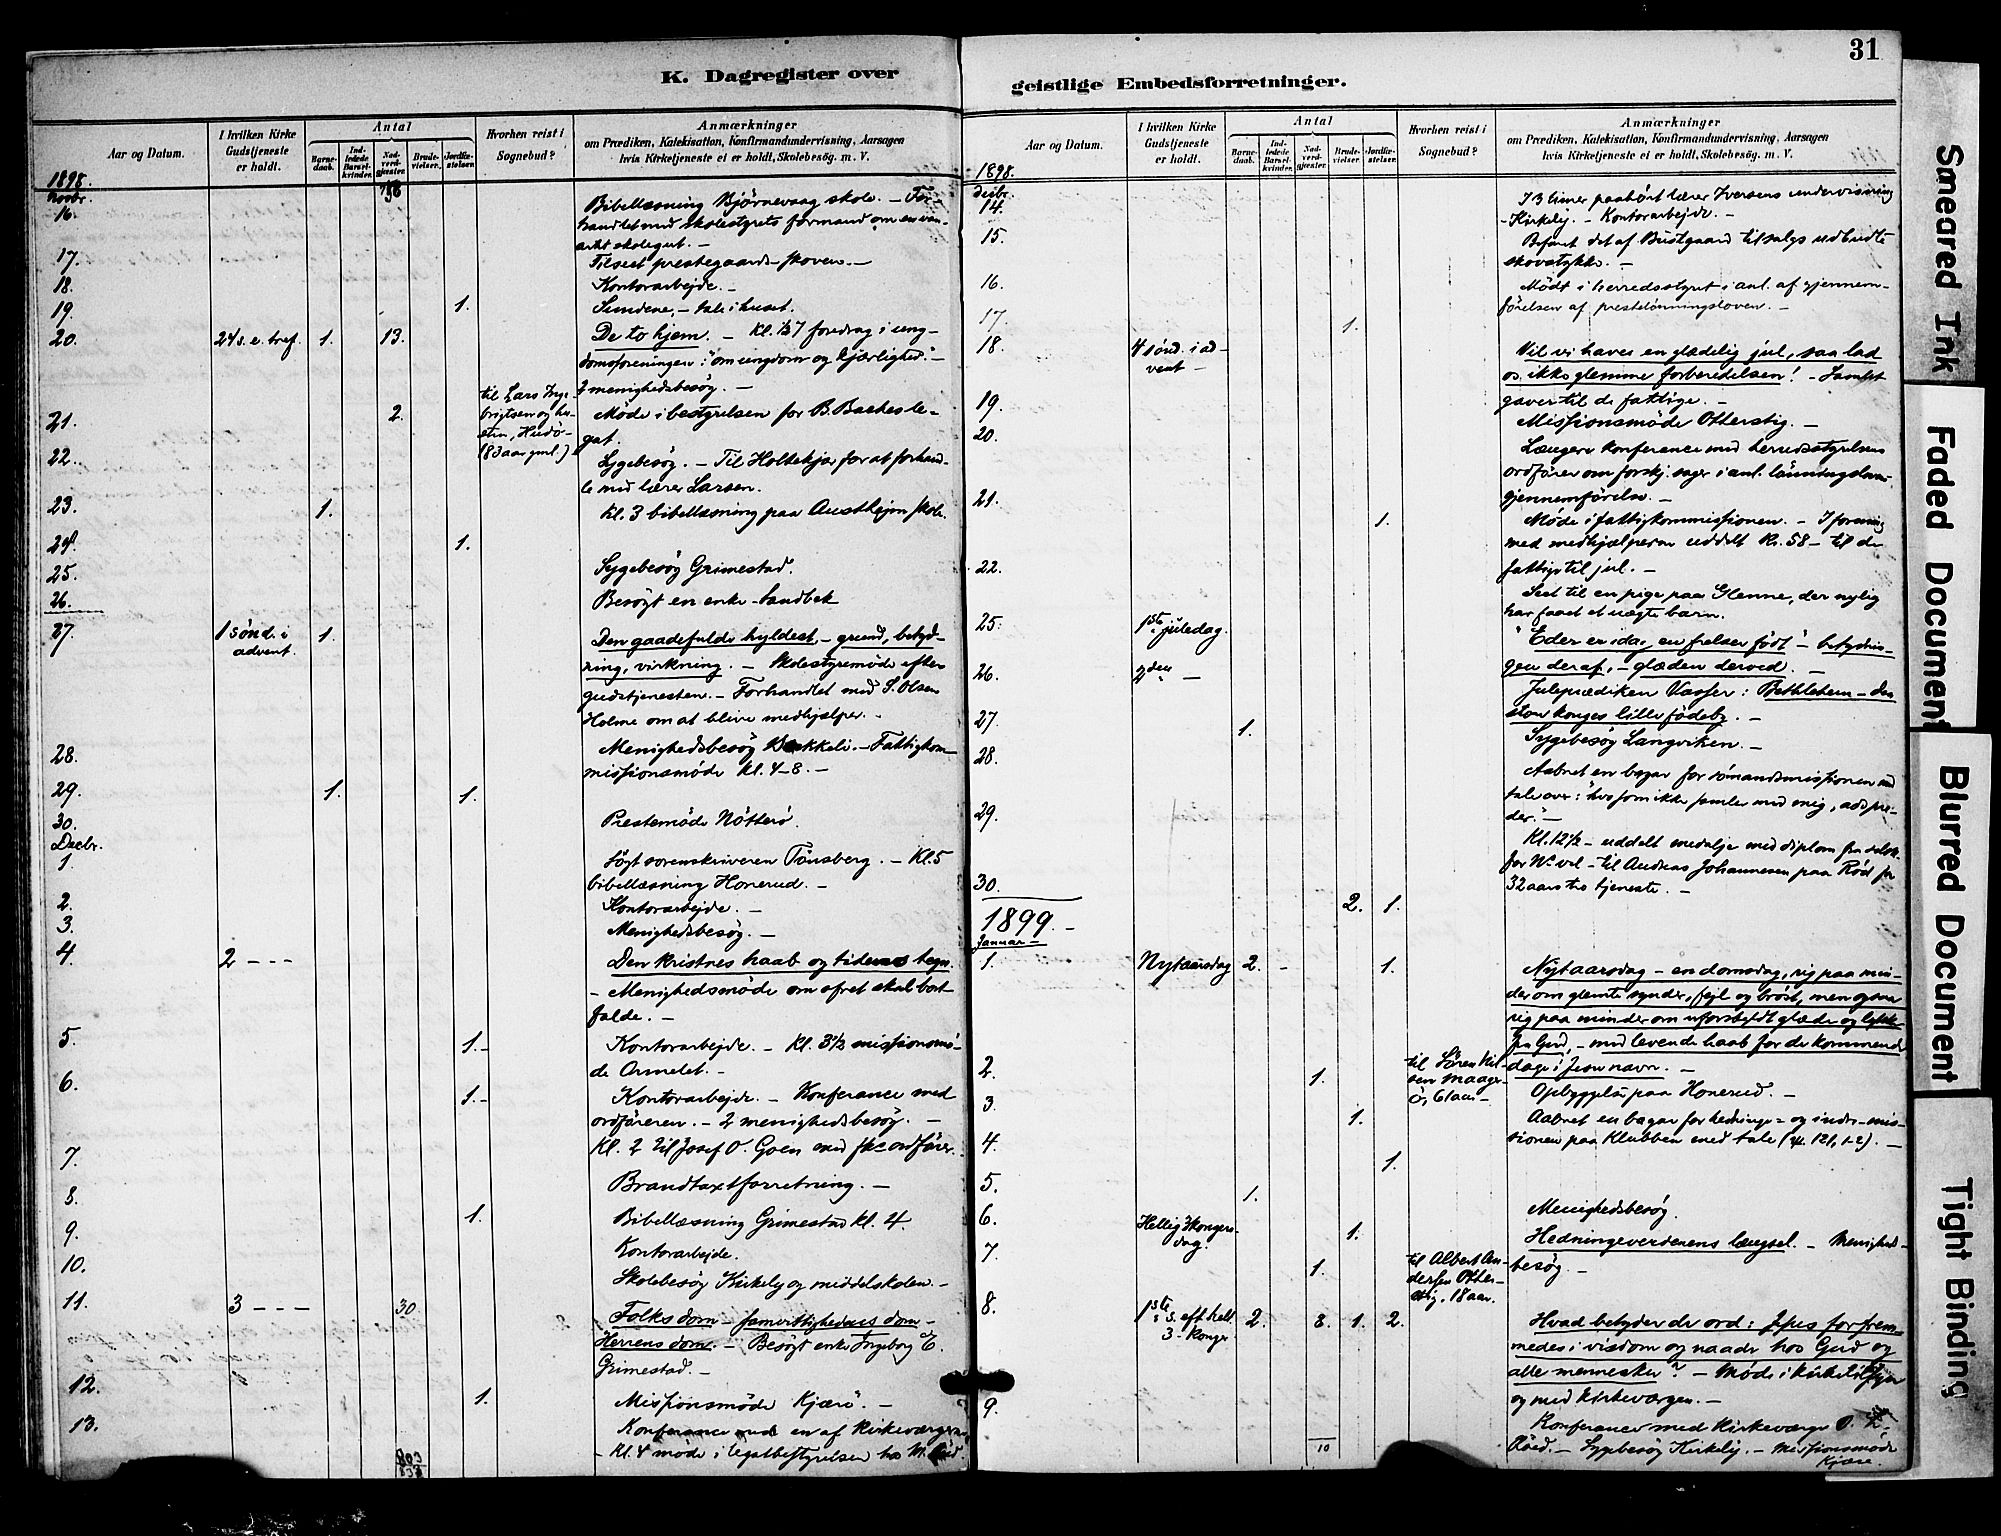 31
K. Dagregister over
geistlige Embedsforretninger.
Aar og Datum.
I hvilken Kirke
Gudstjeneste
er holdt.
Antal
Barne-
daab.
Ind-
ledede
Barsel-
kvinder.
Nad-
verd-
gjæster.
Brude-
vielser.
Jordfæ-
stelser.
Hvorhen reist i
Sognebud?
Anmærkninger
om Prædiken, Katekisation, Konfirmandundervisning, Aarsagen
hvis Kirketjeneste ei er holdt, Skolebesög. m. V.
1898.
Novbr.
16. Bibellæsning Bjørnevaag skole. – For-
handlet med skolestyrets formand om en van-
artet skolegut. –
17. Tilseet prestegaards-skoven. –
18. Kontorarbejde. –
19. 1. Sundene, – tale i huset.
20. 24 s. e. tref. 1. 13. De to hjem. – Kl. ½7 foredrag i ung-
domsforeningen: "om ungdom og kjærlighed". –
2 menighedsbesøg. –
21. 2. til Lars Inge-
brigtsen og hu-
stru, Hudö
(83 aar gml.) Møde i bestyrelsen for B. Baches le-
gat.
22. Sygebesøg. – Til Holtekjær for at forhand-
le med lærer Larsen.
23. 1. Kl. 3 bibellæsning paa Austhejen skole.
24. 1.
25. Sygebesøg Grimestad.
26. Besøgt en enke Sandbek
27. 1 sønd. i
advent. 1. Den gaadefulde hyldest, – grund, betyd-
ning, virkning. – Skolestyremøde efter
gudstjenesten. – Forhandlet med S. Olsen
Holme om at blive medhjælper. –
28. Menighedsbesøg Bakkeli. – Fattigkom-
missionsmøde Kl. 4–8. –
29. 1. 1.
30. Prestemøde Nøtterø.
Decbr.
1. Søgt sorenskriveren Tønsberg. – Kl. 5
bibellæsning Honerud. –
2. Kontorarbejde. –
3. Menighedsbesøg. –
4. 2 – – – Den kristnes haab og tidernes tegn.
– Menighedsmøde om ofret skal bort-
falde. –
5. 1. – Kontorarbejde. – Kl. 3½ missionsmø-
de Ormelet. –
6. 1. – Kontorarbejde. – Konferance med
ordføreren. – 2 menighedsbesøg. –
7. Kl. 2 til Josef O. Goen med ordfører.
8. Brandtaxtforretning. –
9. 1. Bibellæsning Grimestad kl. 4.
10. Kontorarbejde.
Skolebesøg Kirkely og middelskolen. –
11. 3 – – – 30. Folks dom – samvittighedens dom –
Herrens dom. – Besøgt enke Ingeborg E.
Grimestad. –
12. 1. Missionsmøde Kjærø. –
13. Konferance med en af kirkeværgerne
– Kl. 4 møde i legatbestyrelsen hos
Aar og Datum.
I hvilken Kirke
Gudstjeneste
er holdt.
Antal
Barne-
daab.
Ind-
ledede
Barsel-
kvinder.
Nad-
verd-
gjæster.
Brude-
vielser.
Jordfæ-
stelser.
Hvorhen reist i
Sognebud?
Anmærkninger
om Prædiken, Katekisation, Konfirmandundervisning, Aarsagen
hvis Kirketjeneste ei er holdt, Skolebesög. m. V.
1898.
Desbr.
14. I 3 timer paahørt lærer Iversens undervisning
Kirkely. – Kontorarbejde. –
15. Befaret det af Bustgaard tilsalgs udbudte
skovstykke. –
16. Mødt i herredsstyret i anl. af gjennem-
førelsen af prestelønningsloven. –
17. 1.
18. 4 sønd. i ad-
vent – Vil vi have en glædelig jul, saa lad
os ikke glemme forberedelsen! – Samlet
gaver til de fattige. –
19. Missionsmøde Otterstig. –
20. Længere konference med herredsstyrelsens
ordfører om forskj. sager i anl. lønningslovens
gjennemførelse. –
21. 1. Møde i fattigkommissionen. – I forening
med medhjælperne uddelt Kr. 58 – til de
fattige til jul. –
22. Seet til en pige paa Glenne, der nylig
har faaet et uægte barn.
25. 1ste juledag. "Eder er idag en frelser født" – betydnin-
gen deraf, – glæden derved. –
26. 2den – Juleprædiken Vasser: Bethlehem – den
store konges lille fødeby. –
27. 1. Sygebesøg Langviken. –
28. Aabnet en bazar for sømandsmissionen med
tale over: "hvo som ikke samler med mig, adspre-
der." –
29. Kl. 12½ – uddelt medalje med diplom fra selsk.
for N.s vel – til Andreas Johannesen paa Rød for
32 aars tro tjeneste. –
30. 2. 1.
1899. –
Januar –
1. Nytaarsdag 2. – 1. Nytaarsdag – en domsdag, rig paa min-
der om glemte synder, fejl og brøst, men ogsaa
rig paa minder om uforskyldt glæde og lykke
fra Gud, – med levende haab for de kommende
dage i Jesu navn. –
2. 1. til Søren Nil-
sen Maager-
ö, 61 aar – Opbyggelse paa Honerud. –
3. 1. Aabnet en bazar for hedninge- og indre-mis-
sionen paa Klubben med tale (ψ. 121, 1-2). –
4. 1.
5. 1. Menighedsbesøg.
6. Hellig 3 konger-
dag. 1. Hedningeverdenens længsel. – Menigheds-
besøg. –
7. 1. til Albert An-
dersen Otter-
stig, 18 aar.
8. 1ste s. eft. hell.
3-konger 2. 8. 1. 2. Hvad betyder de ord: Jesus forfrem-
medes i visdom og naade hos Gud og
alle mennesker? – Møde i
og med kirkeværgen. –
9. Konferance med kirkeværge O.
– Sygebesøg Kirkely. – Missionsmøde
Kjærø.
10
Smeared Ink
Faded Document
Blurred Document
Tight Binding